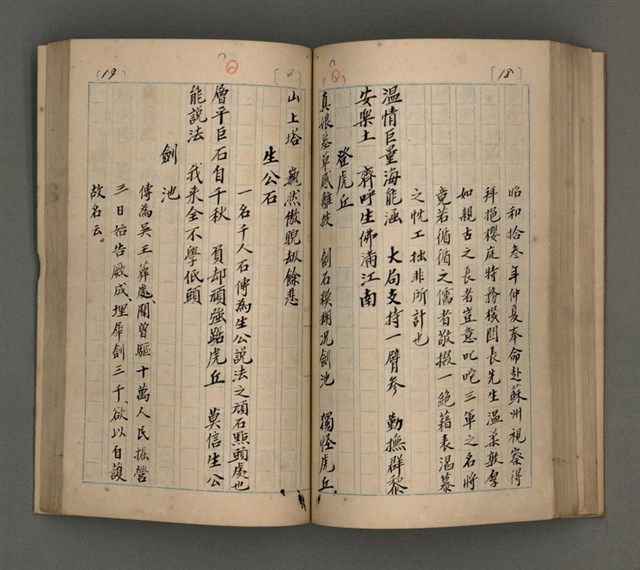 18
昭和拾叁年仲夏奉命赴蘇州視察得
拜挹櫻庭特務機関長先生温柔敦厚
如親古之長者豈意叱咤三軍之名將
竟若循循之儒者敬掇一絕藉表渴慕
之忱工拙非所計也
温情巨量海能涵　大局支持一臂參　勤撫群黎
安樂土　齊呼生佛滿江南
登虎丘
真娘墓草感離披　劍石模糊况劍池　獨怪虎丘
19
山上塔　巍然傲睨劫餘悲
生公石
一名千人石傳為生公説法之頑石點頭處也
層平巨石自千秋　負却頑強踞虎丘　莫信生公
能説法　我来全不學低頭
劍池
傳為吳王葬處、聞曾驅十萬人民振營
三日始告厥成、埋犀劍三千、欲以自護
故名云。